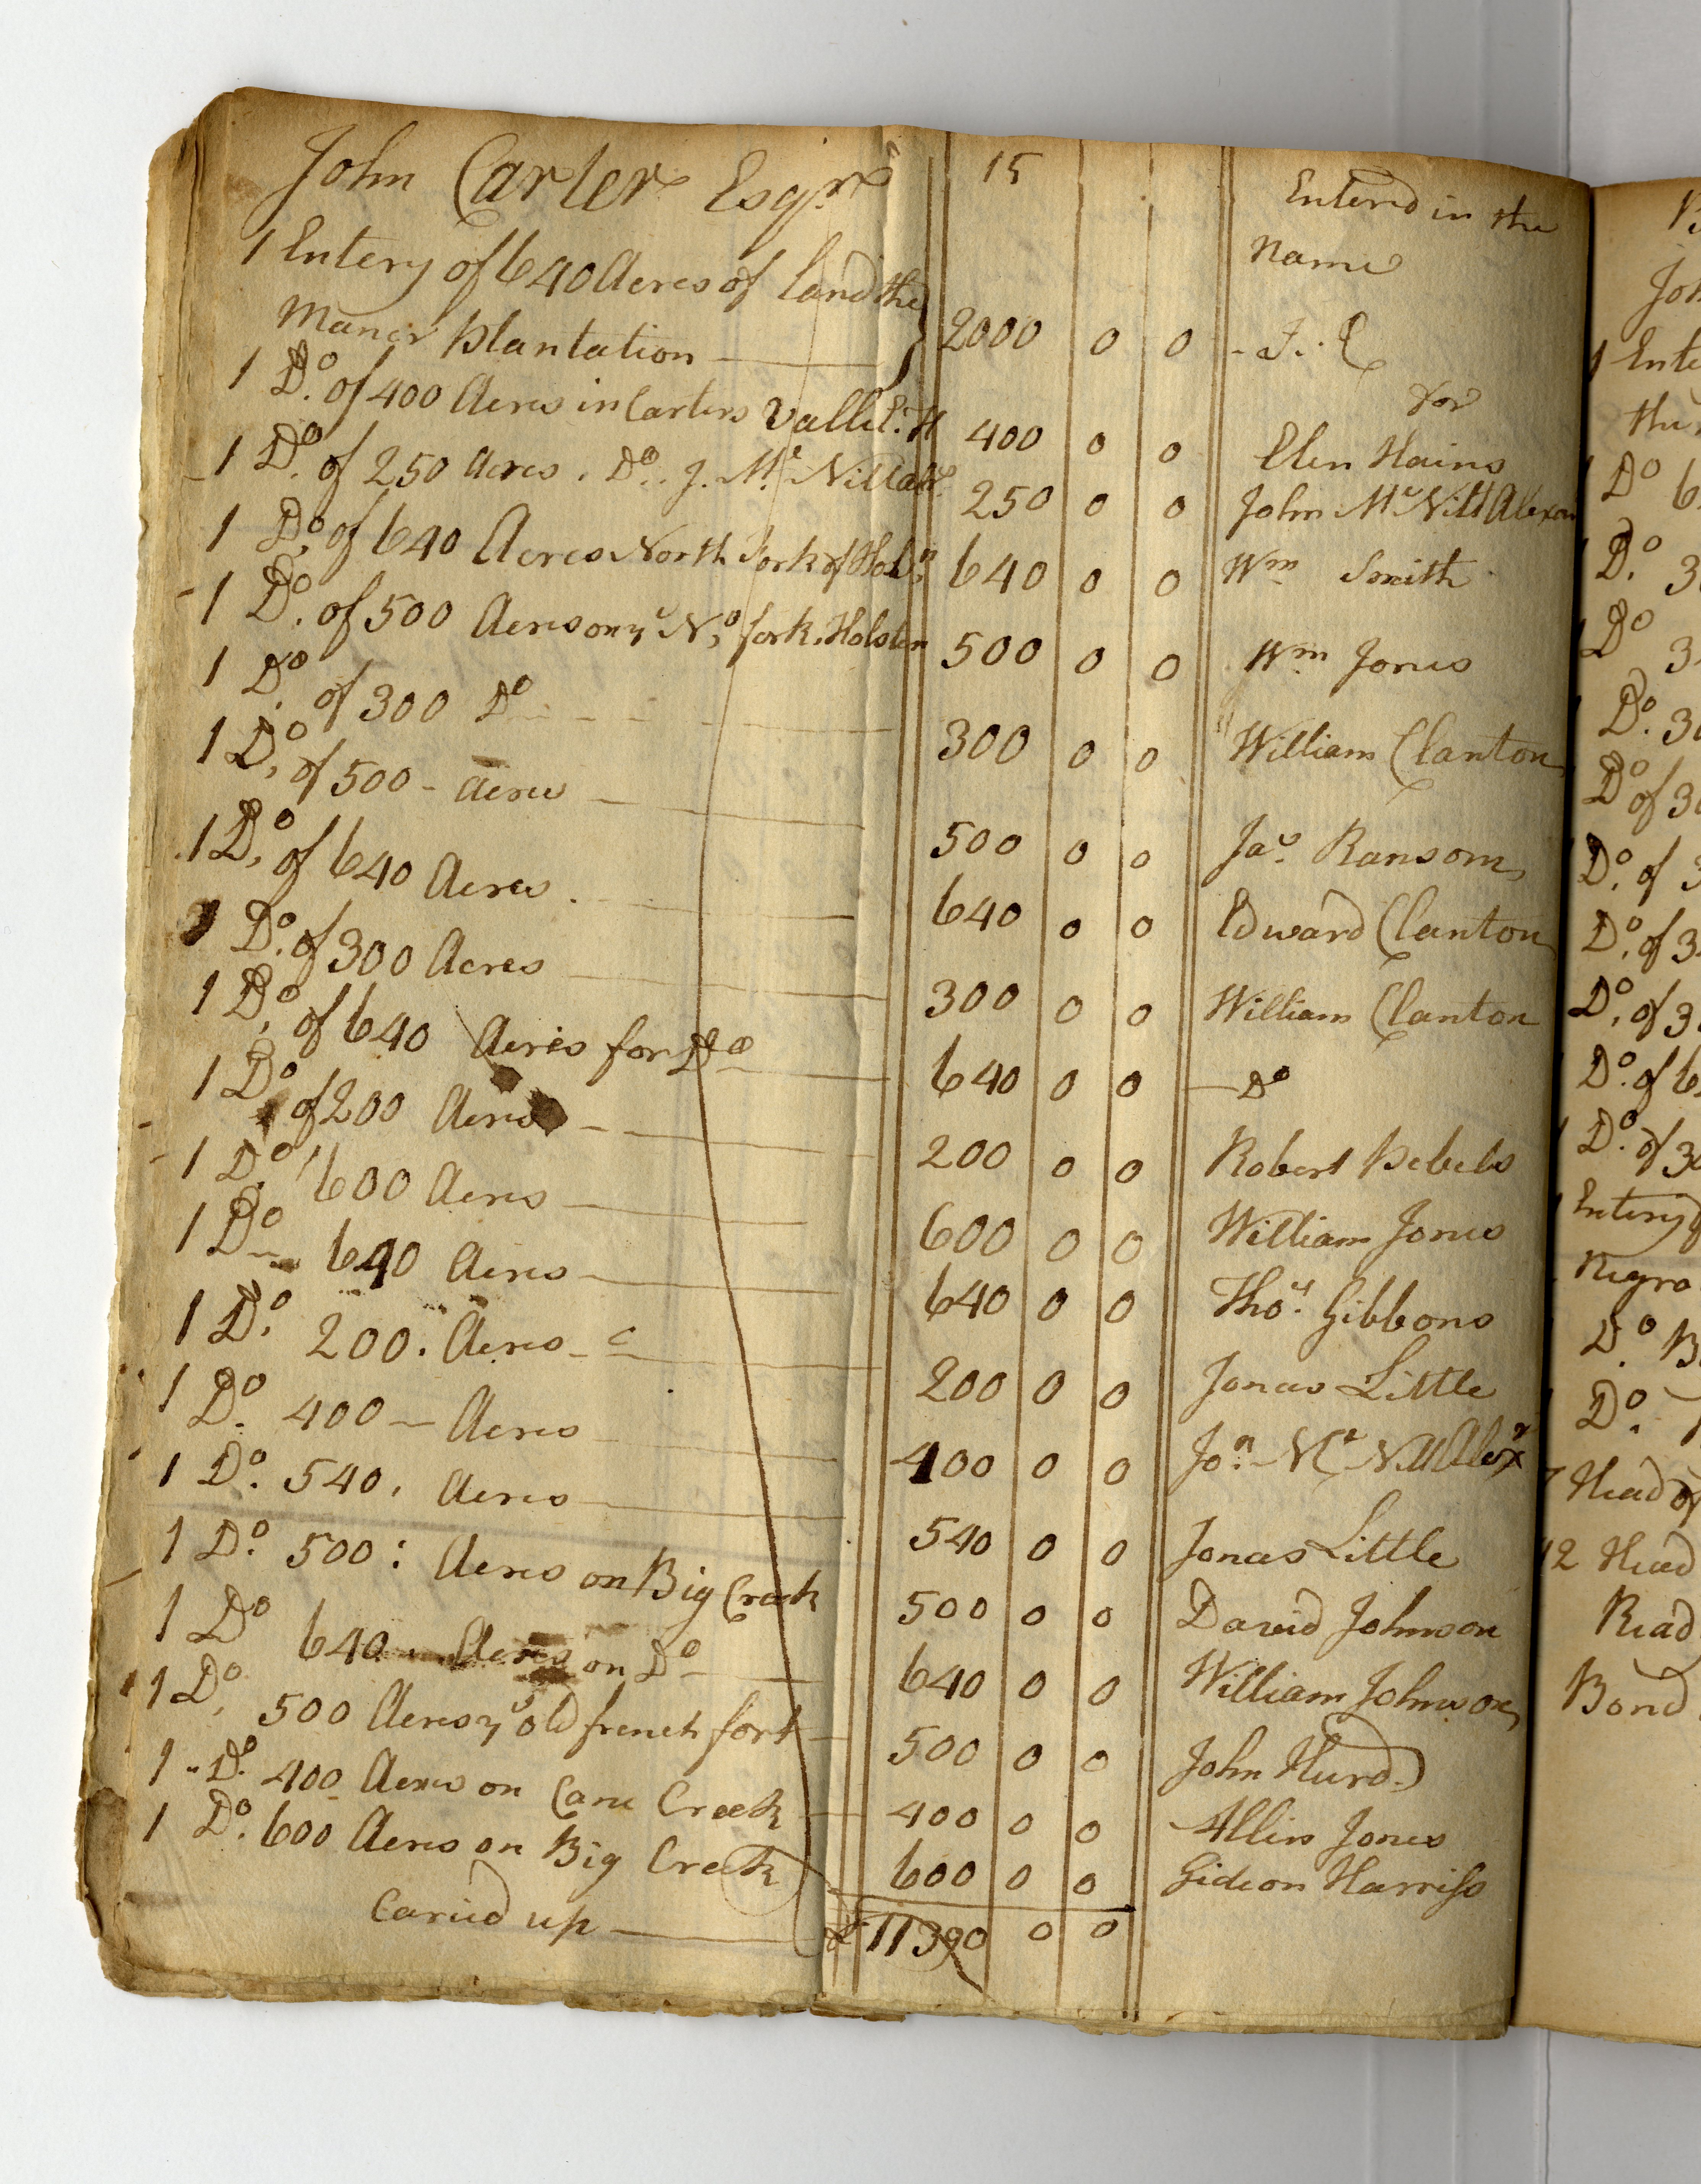 John Carter Esqr 15 Entered in the
Name
1 Entery of 640 Acres of Land the
Maner Plantation 2000 0 0 - J. C
1 Do. of 400 Acres in Carters Valle E. H 400 0 0 for
Elen Hains
1 Do. of 250 Acres. Do. J. Mc Nitt 250 0 0 John Mc Nitt Alexan
1 Do. of 640 Acres North fork of Hols:n 640 0 0 Wm Smith
1 Do. of 500 Acres on ye No. fork. Holsten 500 0 0 Wm Jones
1 Do. of 300 Do 300 0 0 William Clanton
1 Do. of 500 - Acres 500 0 0 Jas. Ransom
1 Do. of 640 Acres. 640 0 0 Edward Clanton
1 Do. of 300 Acres 300 0 0 William Clanton
1 Do. of 640 Acres for Do 640 0 0 Do
1 Do of 200 Acres 200 0 0 Robert Pebels
1 Do. 600 Acres 600 0 0 William Jones
1 Do 640 Acres 640 0 0 Thos. Gibbons
1 Do. 200. Acres 200 0 0 Jonas Little
1 Do. 400 - Acres 400 0 0 Jon. Mc Nitt Alexr
1 Do. 540. Acres 540 0 0 Jonas Little
1 Do. 500: Acres on Big Creek 500 0 0 David Johnson
1 Do 640 Acres on Do 640 0 0 William Johnson
1 Do. 500 Acres ye old french fort 500 0 0 John Hurd
1 Do. 400 Acres on Cane Creek 400 0 0 Allin Jones
1 Do. 600 Acres on Big Creek 600 0 0 Gideon Harriss
Caried up £ 11390 0 0
Joh
1 Ente
the
Do 6
Do. 3
Do 3
Do. 3
Do of 3
Do. of 3
Do. of 3
Do. of 3
Do. of 6
1 Do. of 30
Entery
Negro
Do. B
Do.
7 Head of
12 Head
Read
Bond